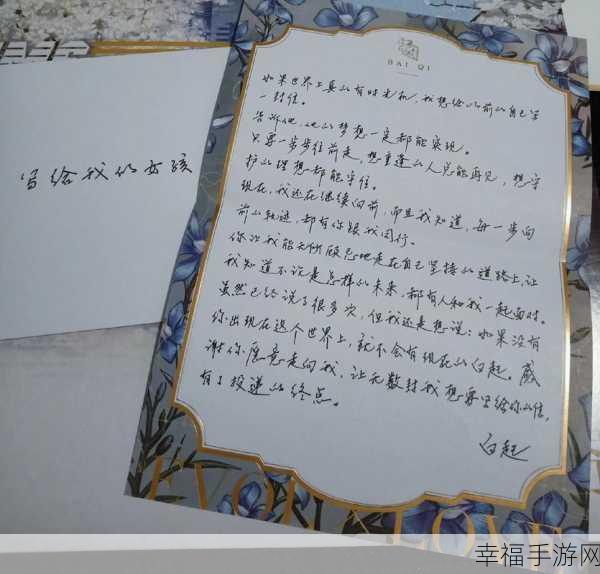 写给我的女孩
BAI QI
如果世界上真的有时光机，我想给以前的自己写
一封信。
告诉他，他的梦想一定都能实现。
只要一步步往前走，想重逢的人总能再见，想守
护的理想都能守住。
现在，我还在继续向前，而且我知道，每一步向
前的轨迹，都有你跟我同行。
你让我能无所顾忌地走在自己坚持的道路上，让
我知道不论是怎样的未来，都有人和我一起面对。
虽然已经说了很多次，但我还是想说：如果没有
你出现在这个世界上，就不会有现在的白起。感
谢你愿意走向我，让无数封我想要写给你的信，
有了投递的终点。
白起
EVOL LOVE
幸福手游网